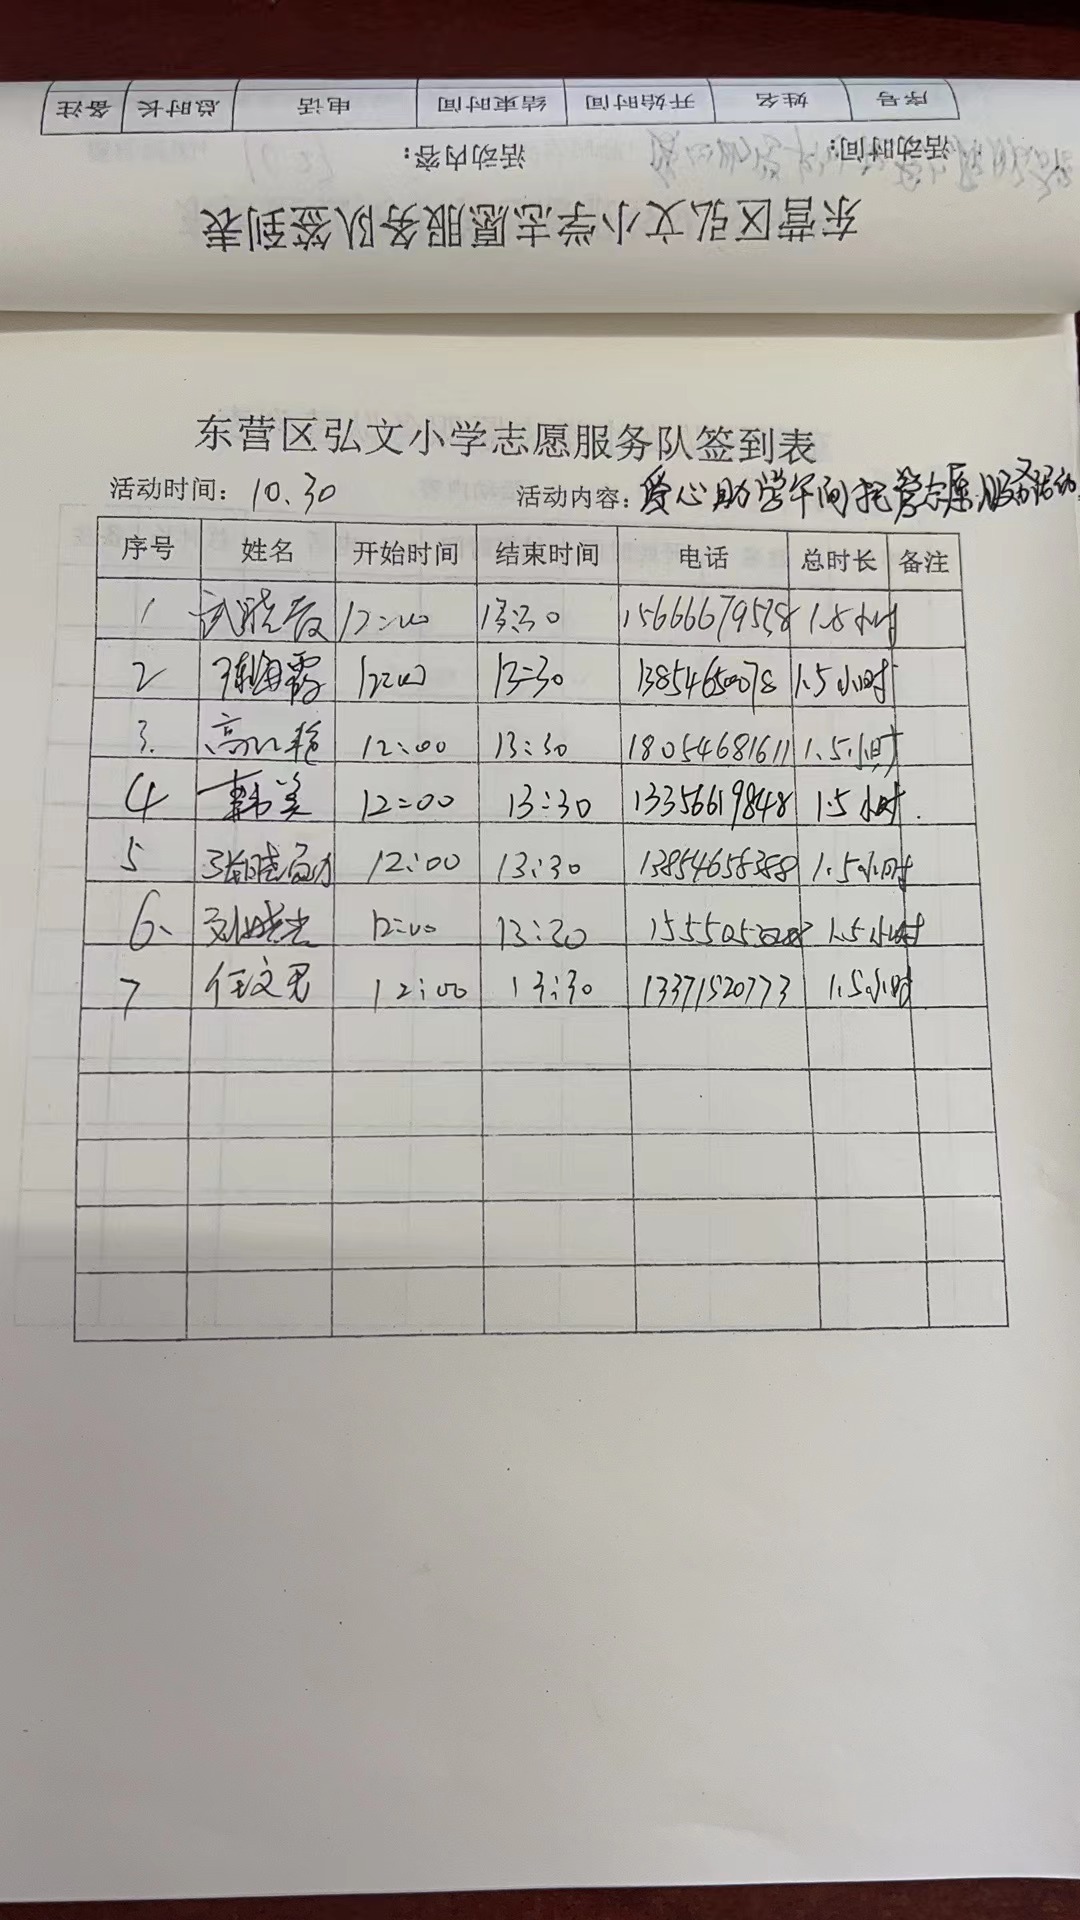 序号 姓名 开始时间 结束时间 电话 总时长 备注
活动时间: 活动内容:
东营区弘文小学志愿服务队签到表
东营区弘文小学志愿服务队签到表
活动时间: 10.30 活动内容: 爱心助学午间托管志愿服务活动
序号 姓名 开始时间 结束时间 电话 总时长 备注
1 武晓霞 12:00 13:30 1.5小时
2 海霞 12:00 13:30 13854650078 1.5小时
3. 高 艳 12:00 13:30 18054681611 1.5小时
4 韩美 12:00 13:30 13356619848 1.5小时.
5 张晓 12:00 13:30 13854658388 1.5小时
6. 刘晓光 12:00 13:30 1.5小时
7 任文君 12:00 13:30 13371520773 1.5小时